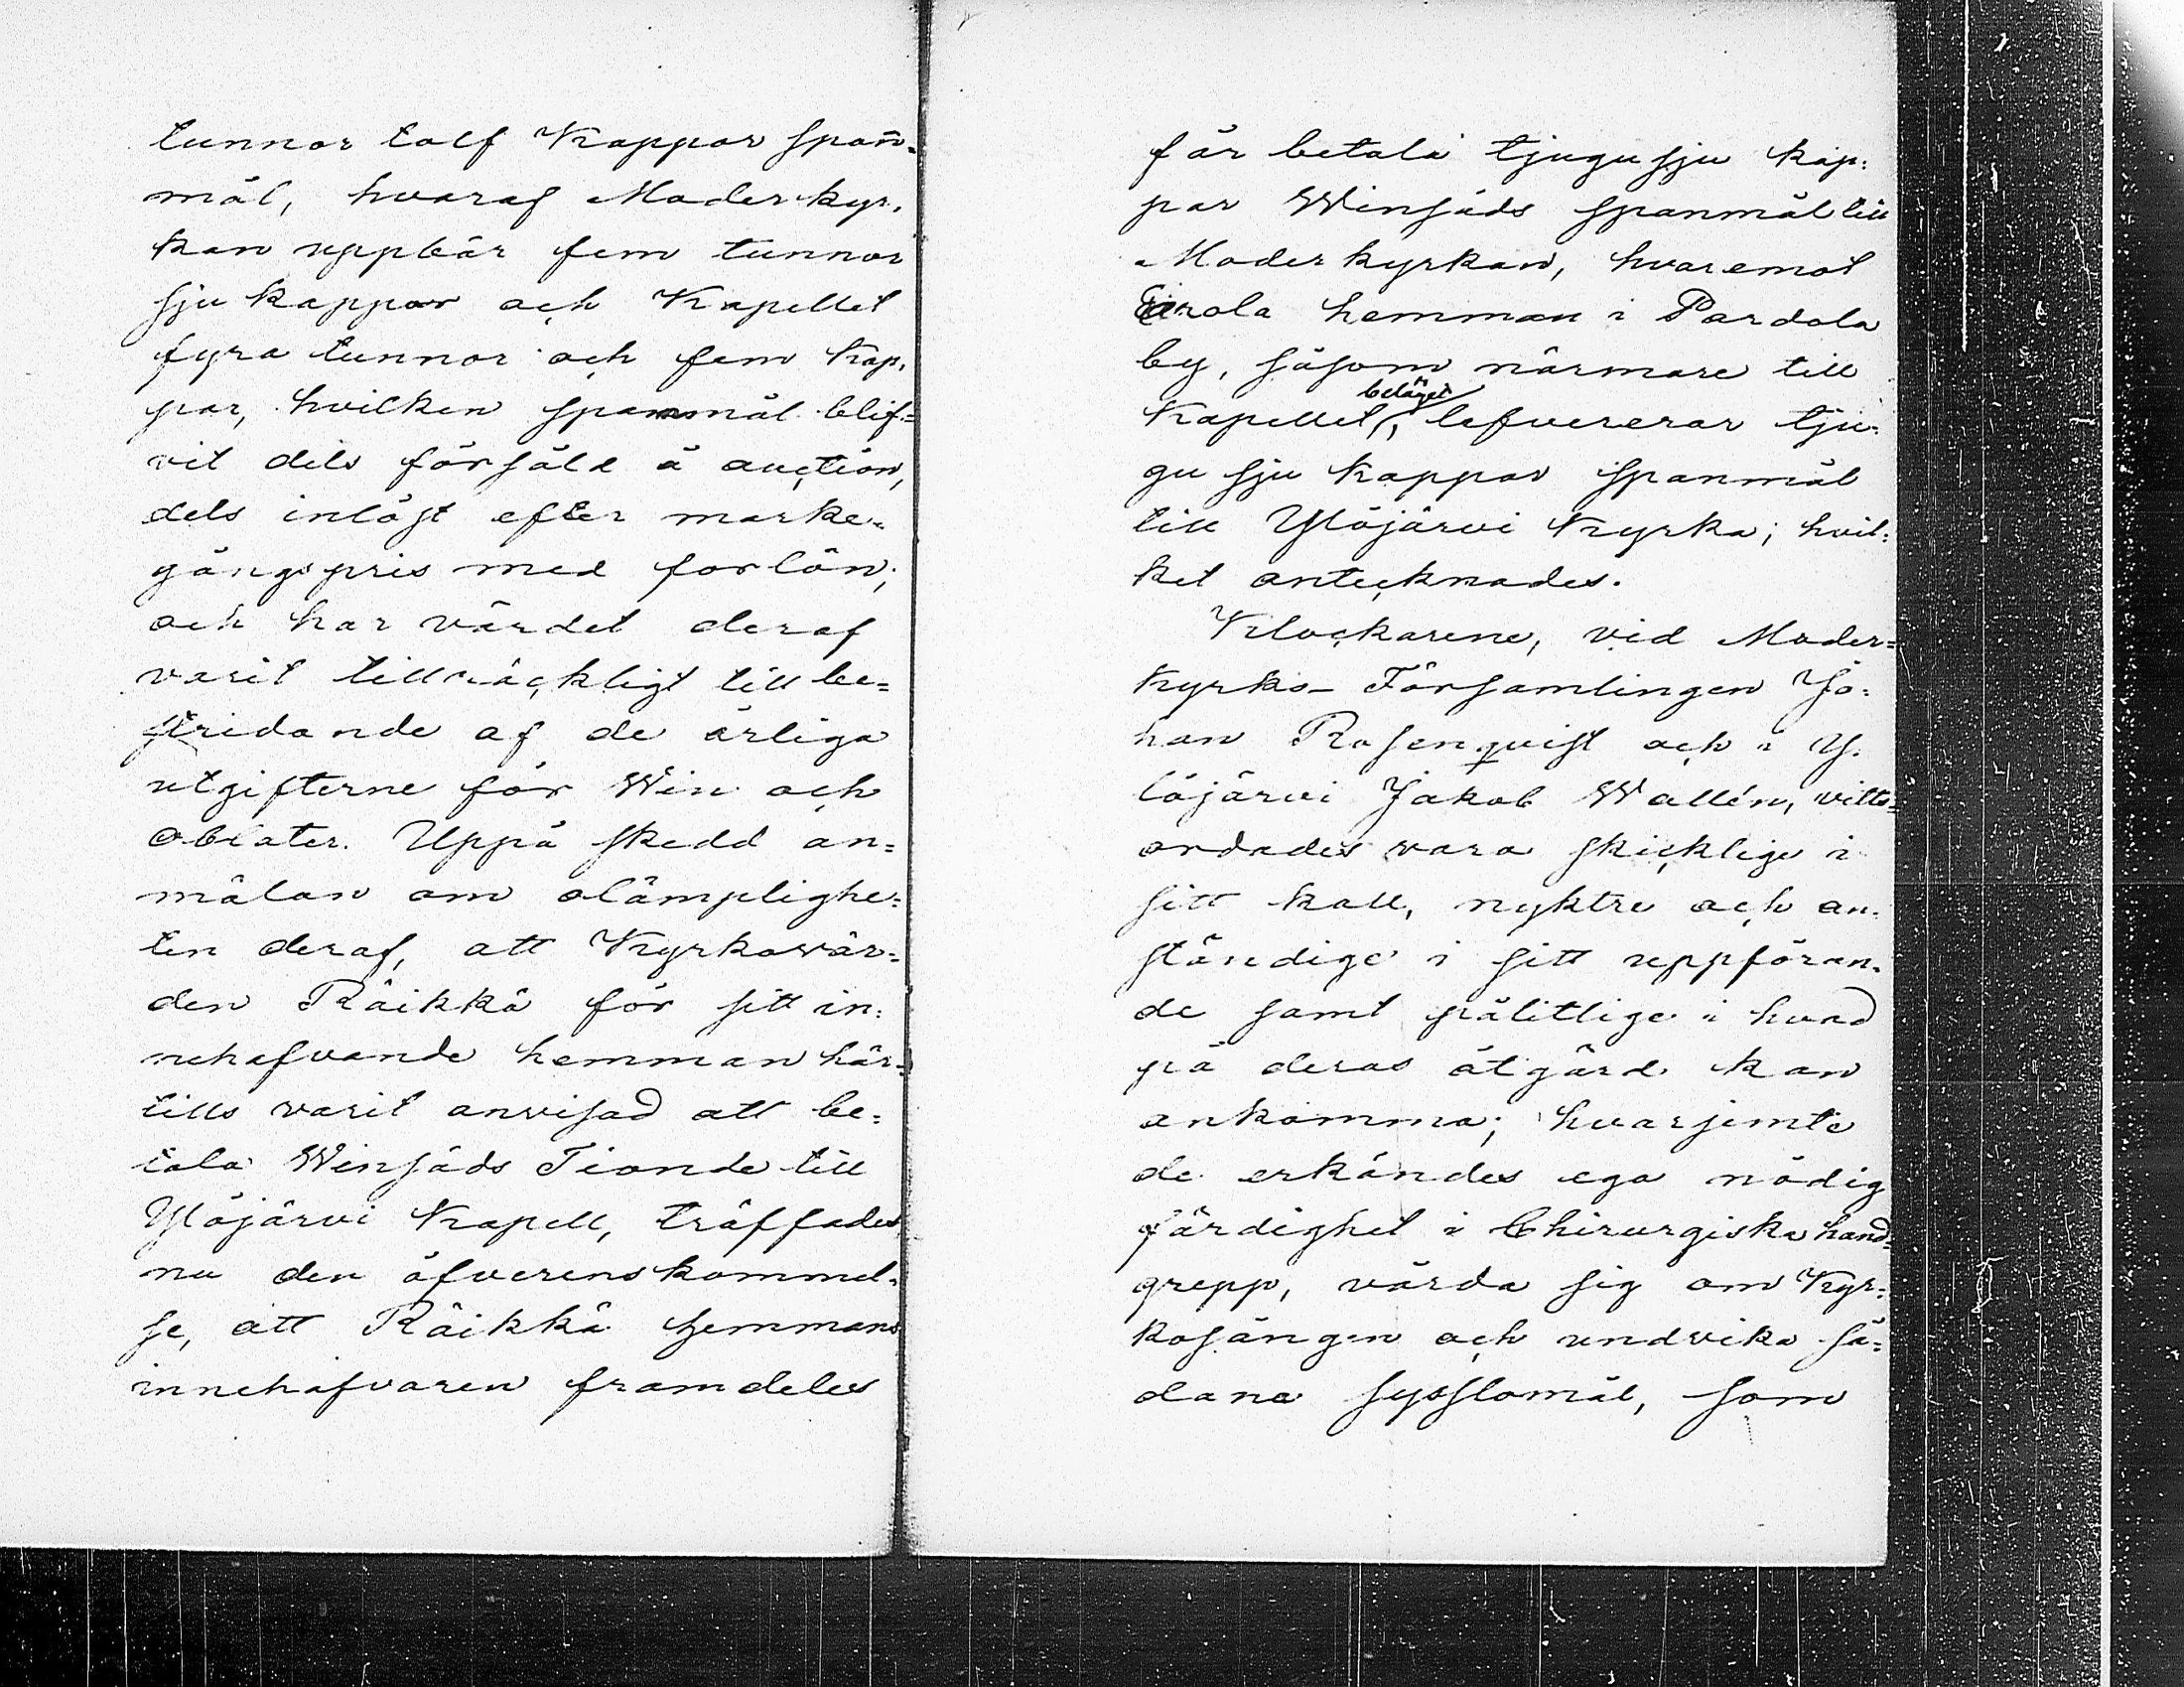 tunnor tolf Kappor span̄-
mål, hvaraf Moderkyr-
kan uppbär fem tunnor
sju kappor och Kapellet
fyra tunnor och fem kap-
par, hvilken spannmål blif-
vit dels försåld å auction,
dels inlöst efter marke-
gångspris med forlön;
och har värdet deraf
varit tillräckligt till be-
stridande af de årliga
utgifterne för Win och
oblater. Uppå skedd an-
mälan om olämplighe-
ten deraf, att Kyrkovär-
den Räikkä för sitt in-
nehafvande hemman här-
tills varit anvisad att be-
tala Winsäds Tionde till
Ylöjärvi Kapell, träffades
nu den öfverenskommel-
se, att Räikkä hemmans
innehafvaren framdeles
får betala tjugusju kap-
par Winsäds spanmål till
Moderkyrkan, hvaremot
Eerola hemman i Pardola
by, såsom närmare till
Kapellet beläget, lefvererar tju-
gu sju kappar spanmål
till Ylöjärvi Kyrka; hvil-
ket antecknades.
Klockarene, vid Moder-
kyrko-Församlingen Jo-
han Rosenqvist och i Y-
löjärvi Jakob Wallén, vitts-
ordades vara skicklige i
sitt kall, nyktre och an-
ständige i sitt uppföran-
de samt pålitlige i hvad
på deras åtgärd kan
ankomma; hvarjemte
de erkändes ega nödig
färdighet i Chirurgiska hand-
grepp, vårda sig om Kyr-
kosången och undvika så-
dana sysslomål, som